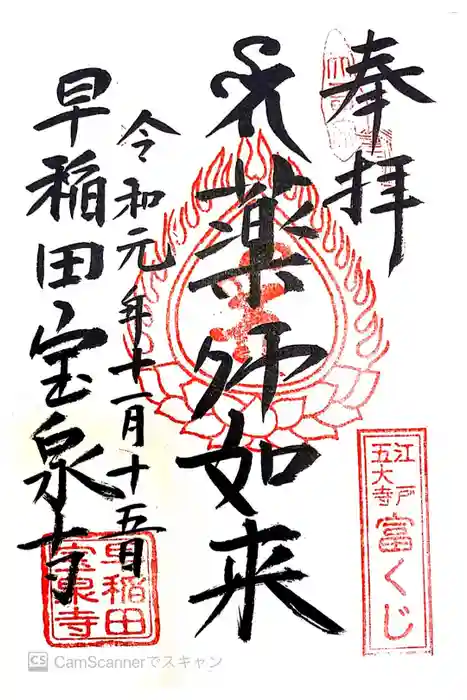 奉拝
薬師如来
令和元年十一月十五日
早稲田宝泉寺
江戸
五大寺
富くじ
早稲田
宝泉寺
CS CamScannerでスキャン